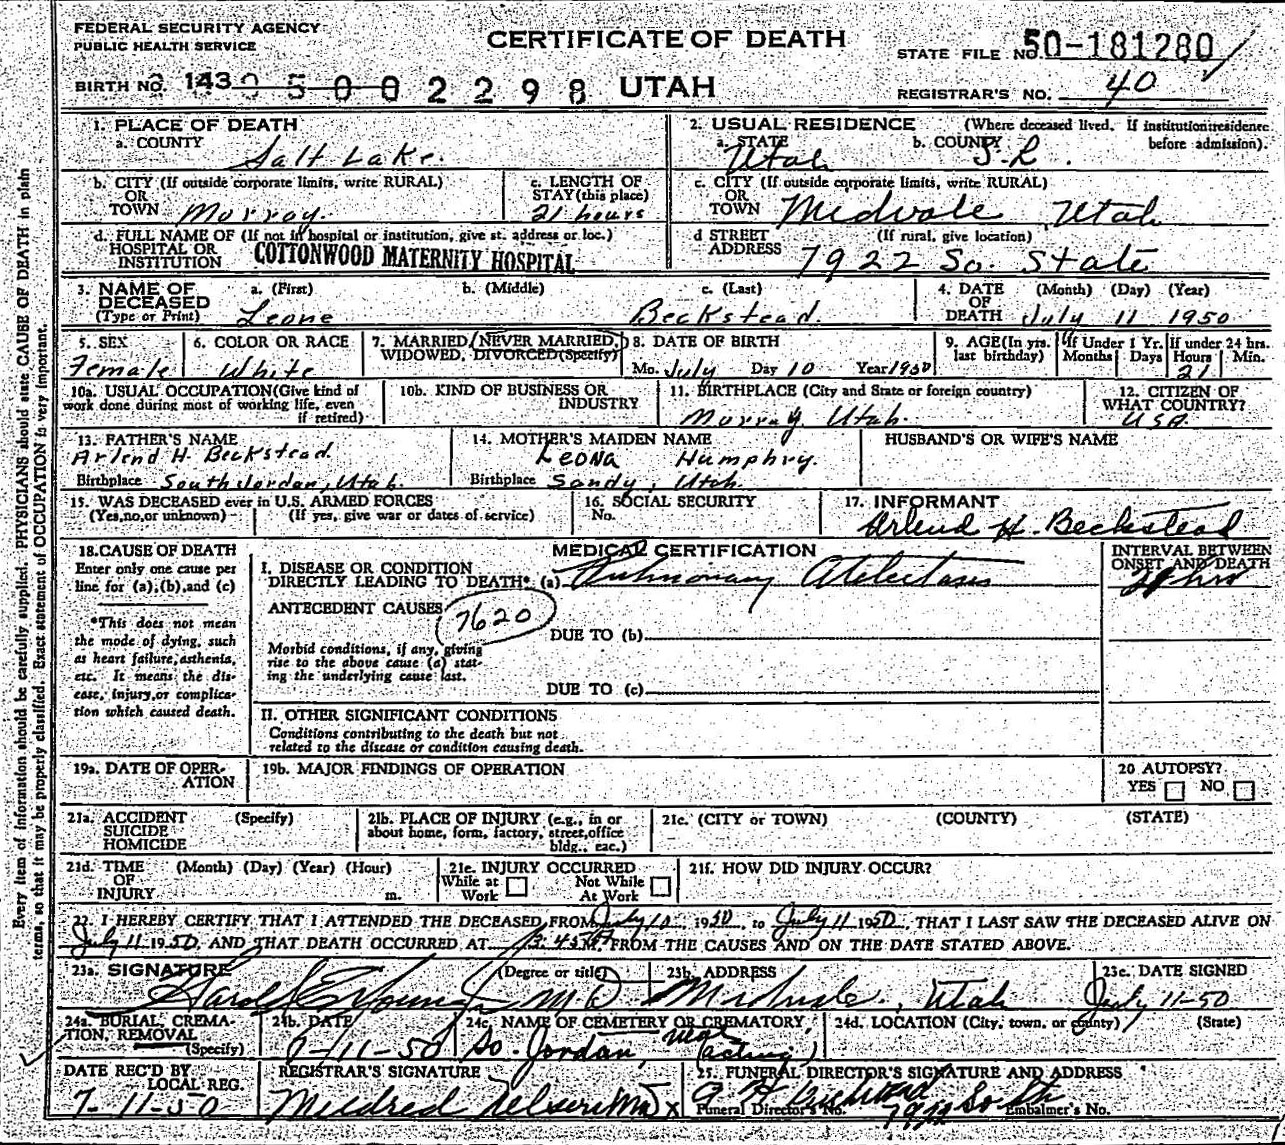 FEDERAL SECURITY AGENCY
PUBLIC HEALTH SERVICE
CERTIFICATE OF DEATH
STATE FILE NO. 50-181280
BIRTH NO. 143 0 5 0 0 2 2 9 8 UTAH
REGISTRAR'S NO. 40
1. PLACE OF DEATH
a. COUNTY Salt Lake.
2. USUAL RESIDENCE (Where deceased lived. If institution: residence before admission).
a. STATE Utah b. COUNTY S.L.
b. CITY (If outside corporate limits, write RURAL)
OR
TOWN Murray.
c. LENGTH OF
STAY (this place)
21 hours
c. CITY (If outside corporate limits, write RURAL)
OR
TOWN Midvale, Utah
d. FULL NAME OF (If not in hospital or institution, give st. address or loc.)
HOSPITAL OR
INSTITUTION COTTONWOOD MATERNITY HOSPITAL
d STREET (If rural, give location)
ADDRESS 7922 So. State
3. NAME OF
DECEASED
(Type or Print)
a. (First) Leone
b. (Middle)
c. (Last) Beckstead
4. DATE (Month) (Day) (Year)
OF
DEATH July 11 1950
5. SEX
Female
6. COLOR OR RACE
White
7. MARRIED, NEVER MARRIED,
WIDOWED, DIVORCED (Specify)
8. DATE OF BIRTH
Mo. July Day 10 Year 1950
9. AGE (In yrs.
last birthday)
If Under 1 Yr.
Months Days
If under 24 hrs.
Hours Min.
21
10a. USUAL OCCUPATION (Give kind of
work done during most of working life, even
if retired)
10b. KIND OF BUSINESS OR
INDUSTRY
11. BIRTHPLACE (City and State or foreign country)
Murray, Utah.
12. CITIZEN OF
WHAT COUNTRY?
USA.
13. FATHER'S NAME
Arlend H. Beckstead
Birthplace South Jordan, Utah.
14. MOTHER'S MAIDEN NAME
Leona Humphry.
Birthplace Sandy, Utah.
HUSBAND'S OR WIFE'S NAME
15. WAS DECEASED ever in U.S. ARMED FORCES
(Yes, no, or unknown) (If yes, give war or dates of service)
16. SOCIAL SECURITY
No.
17. INFORMANT
Arlend H. Beckstead
18. CAUSE OF DEATH
Enter only one cause per
line for (a), (b), and (c)
*This does not mean
the mode of dying, such
as heart failure, asthenia,
etc. It means the dis-
ease, injury, or complica-
tion which caused death.
MEDICAL CERTIFICATION
I. DISEASE OR CONDITION
DIRECTLY LEADING TO DEATH* (a) Pulmonary Atelectasis
INTERVAL BETWEEN
ONSET AND DEATH
hrs
ANTECEDENT CAUSES 7620
DUE TO (b)
Morbid conditions, if any, giving
rise to the above cause (a) stat-
ing the underlying cause last.
DUE TO (c)
II. OTHER SIGNIFICANT CONDITIONS
Conditions contributing to the death but not
related to the disease or condition causing death.
19a. DATE OF OPER-
ATION
19b. MAJOR FINDINGS OF OPERATION
20 AUTOPSY?
YES NO
21a. ACCIDENT (Specify)
SUICIDE
HOMICIDE
21b. PLACE OF INJURY (e.g., in or
about home, form, factory, street, office
bldg., eac.)
21c. (CITY or TOWN) (COUNTY) (STATE)
21d. TIME (Month) (Day) (Year) (Hour)
OF
INJURY m.
21e. INJURY OCCURRED
While at Work Not While At Work
21f. HOW DID INJURY OCCUR?
22. I HEREBY CERTIFY THAT I ATTENDED THE DECEASED FROM July 10, 1950, to July 11 1950, THAT I LAST SAW THE DECEASED ALIVE ON
July 11 1950, AND THAT DEATH OCCURRED AT FROM THE CAUSES AND ON THE DATE STATED ABOVE.
23a. SIGNATURE (Degree or title)
Harold E Young M.D.
23b. ADDRESS
Midvale, Utah
23c. DATE SIGNED
July 11-50
24a. BURIAL, CREMA-
TION, REMOVAL
(Specify)
24b. DATE
7-11-50
24c. NAME OF CEMETERY OR CREMATORY
So. Jordan,
(acting)
24d. LOCATION (City, town, or county) (State)
DATE REC'D BY
LOCAL REG.
7-11-50
REGISTRAR'S SIGNATURE
Mildred Nelson
25. FUNERAL DIRECTOR'S SIGNATURE AND ADDRESS
Funeral Director's No. Embalmer's No.
7922 South
Every item of information should be carefully supplied. PHYSICIANS should state CAUSE OF DEATH in plain
terms, so that it may be properly classified. Exact statement of OCCUPATION is very important.